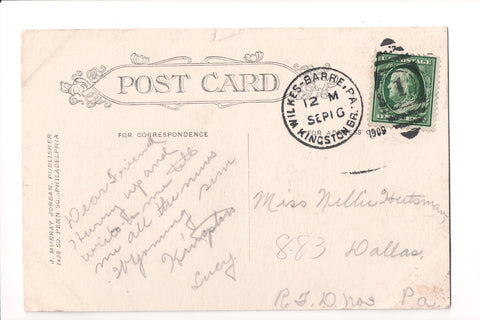 POST CARD
FOR CORRESPONDENCE
FOR ADDRESS
J. MURRAY JORDAN, PUBLISHER
1438 SO. PENN SQ., PHILADELPHIA
WILKES-BARRE, PA.
12 M
SEP 16
1909
KINGSTON BR.
U.S. POSTAGE
1
Dear Friend
Hurry up and
write to me tell
me all the news
Wyoming Sem
Kingston
Lucy.
Miss Nellie
883 Dallas,
R.F.D. Pa.